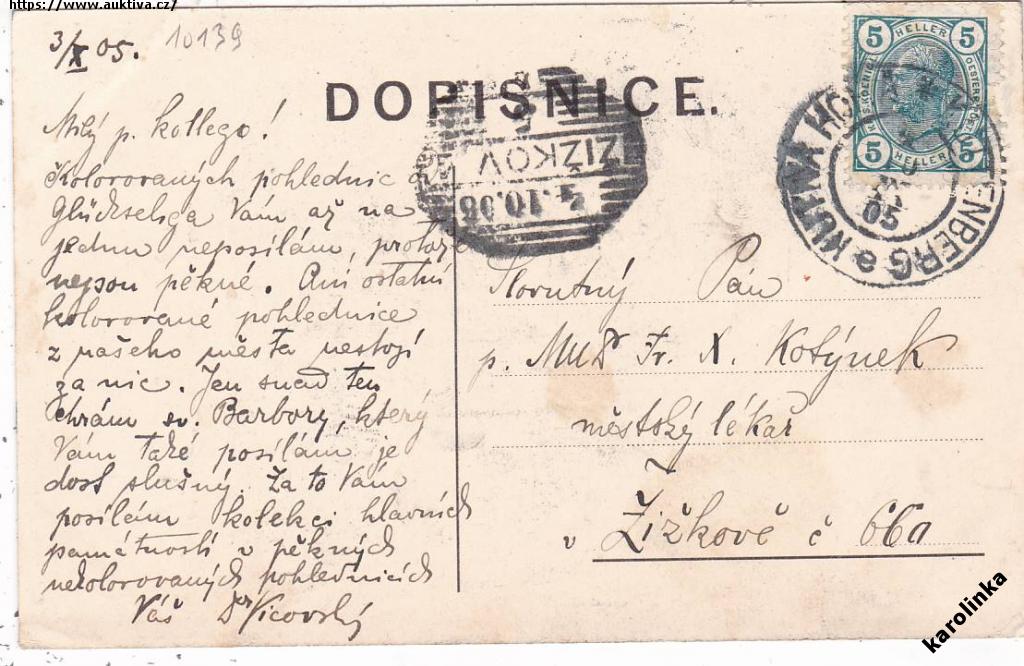 https://www.auktiva.cz/
3/X 05.
10139
DOPISNICE.
Milý p. kollego!
Kolorovaných pohlednic
Glückseliga Vám až na
jednu neposílám, protože
nejsou pěkné. Ani ostatní
kolorované pohlednice
z našeho města nestojí
za nic. Jen snad ten
chrám sv. Barbory, který
Vám také posílám je
dost slušný. Za to Vám
posílám kolekci hlavních
památností v pěkných
nekolorovaných pohlednicích
Váš Dr Vicovský
ŽIŽKOV
4.10.05
5 HELLER 5
5 HELLER 5
KUTNÁ HO
TENBERG
05
Slovutný Pán
p. MUDr Fr. X. Kotýnek
městský lékař
v Žižkově č 660
karolinka